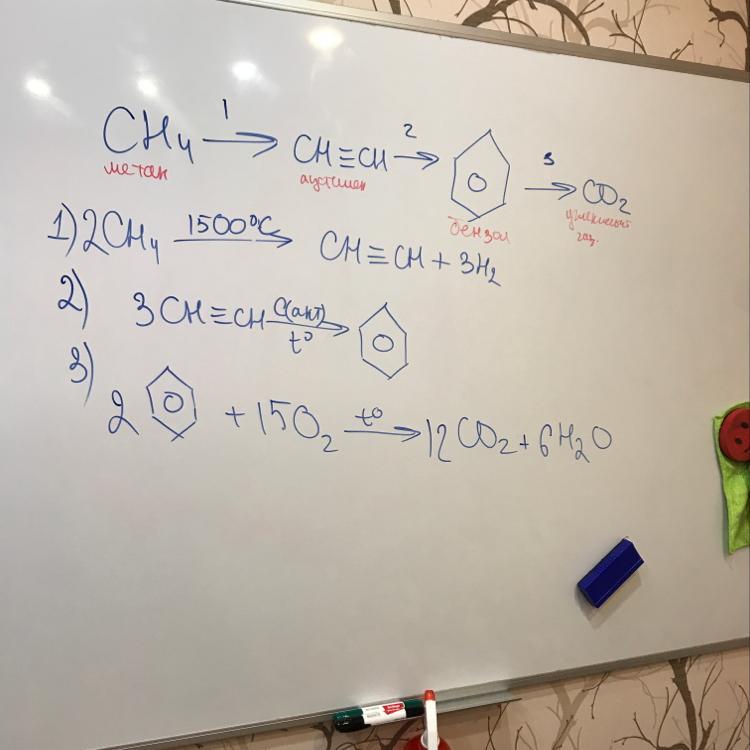 CH₄ —1→ CH≡CH —2→ —3→ CO₂
метан ацетилен бензол углекислый газ.
1) 2CH₄ —1500°C→ CH≡CH + 3H₂
2) 3CH≡CH —C(акт) t°→
3) 2 + 15O₂ —t°→ 12CO₂ + 6H₂O